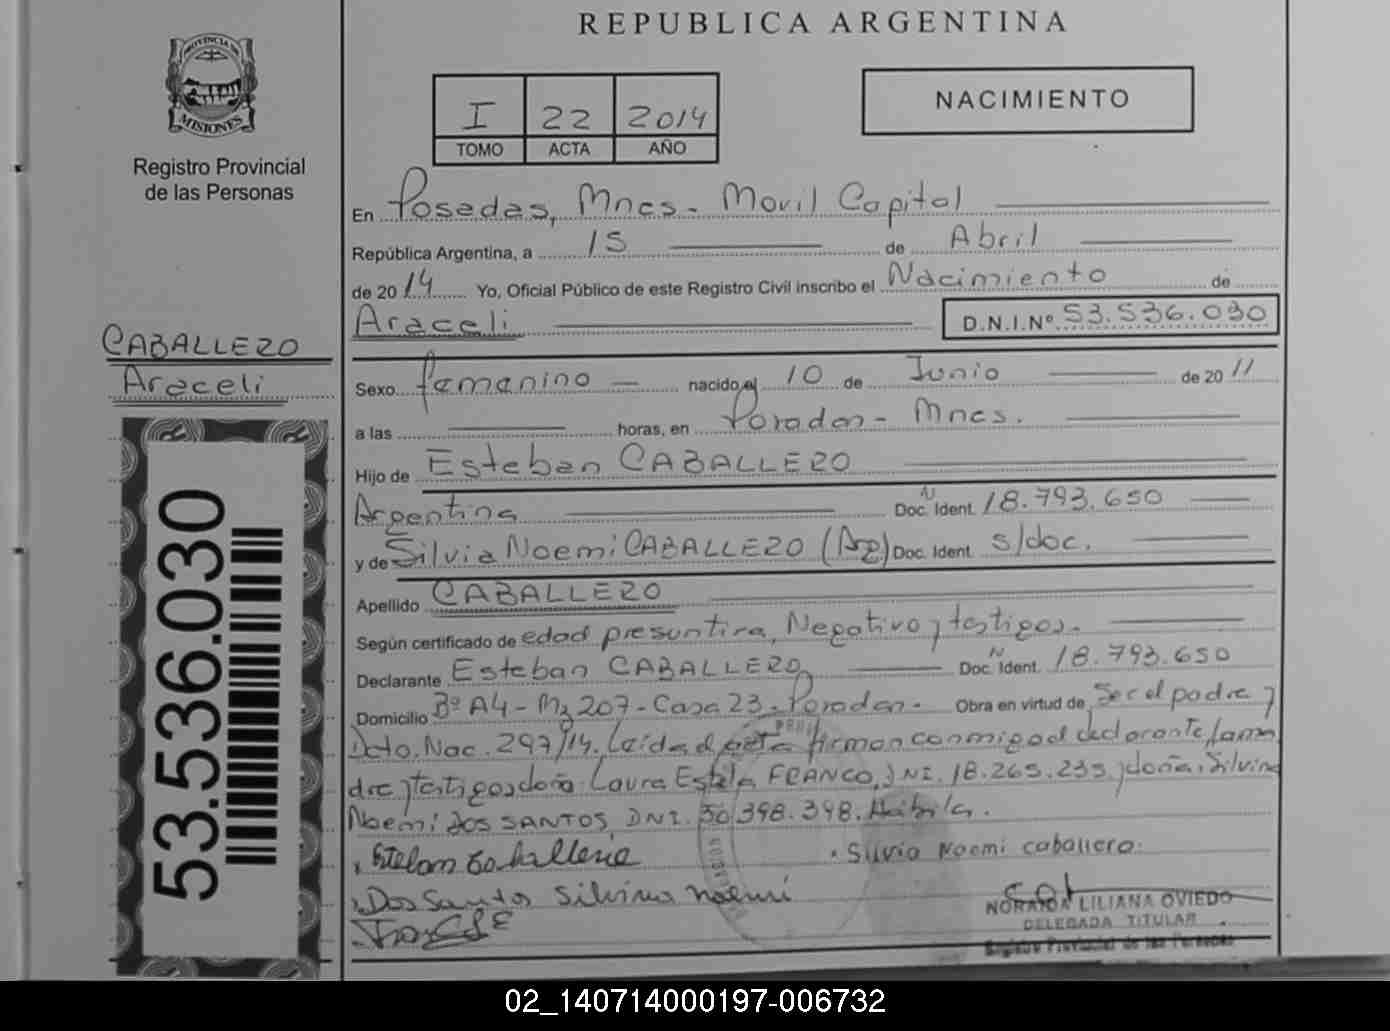 REPUBLICA ARGENTINA
PROVINCIA DE
MISIONES
Registro Provincial
de las Personas
I 22 2014
TOMO ACTA AÑO
NACIMIENTO
En Posadas, Mnes - Movil Capital
República Argentina, a 15 de Abril
de 2014 Yo, Oficial Público de este Registro Civil inscribo el Nacimiento de
Araceli D.N.I.Nº 53.536.030
CABALLERO
Araceli
Sexo femenino nacido el 10 de Junio de 2011
a las horas, en Posadas - Mnes.
Hijo de Esteban CABALLERO
Argentina Doc. Ident. 18.793.650
y de Silvia Noemi CABALLERO (Arg) Doc. Ident. s/doc.
Apellido CABALLERO
Según certificado de edad presuntiva, Negativo y testigos.
Declarante Esteban CABALLERO Doc. Ident. 18.793.650
Domicilio Bº A4 - Mz 207 - Casa 23 - Posadas - Obra en virtud de Ser el padre y
Dcto. Nac. 297/14. Leida el acta firman conmigo el declarante, la ma
dre y testigos doña Laura Estela FRANCO, DNI. 18.265.235 y doña Silvina
Noemi DOS SANTOS, DNI. 30.398.398.
Esteban Caballero
Silvia Noemi caballero
Dos Santos Silvina Noemí
NORAIDA LILIANA OVIEDO
DELEGADA TITULAR
Registro Provincial de las Personas
53.536.030
02_140714000197-006732